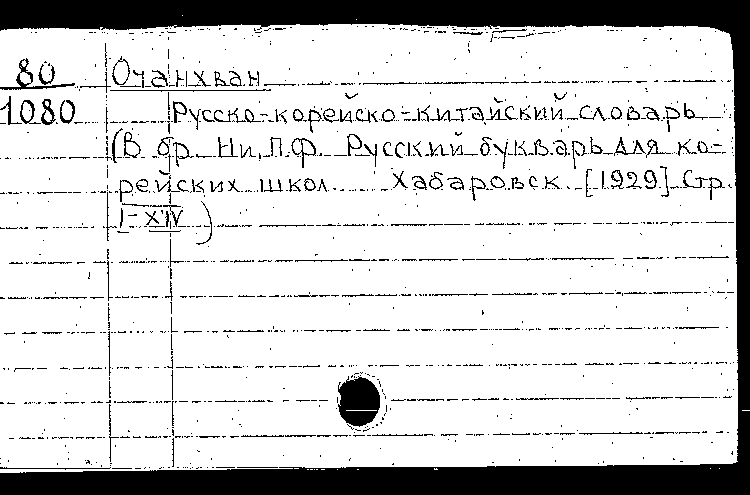 80 Очанхван
1080 Русско-корейско-китайский словарь
(В бр. Ни, П.Ф. Русский букварь для ко-
рейских школ. Хабаровск. [1929] Стр.
I-XIV)